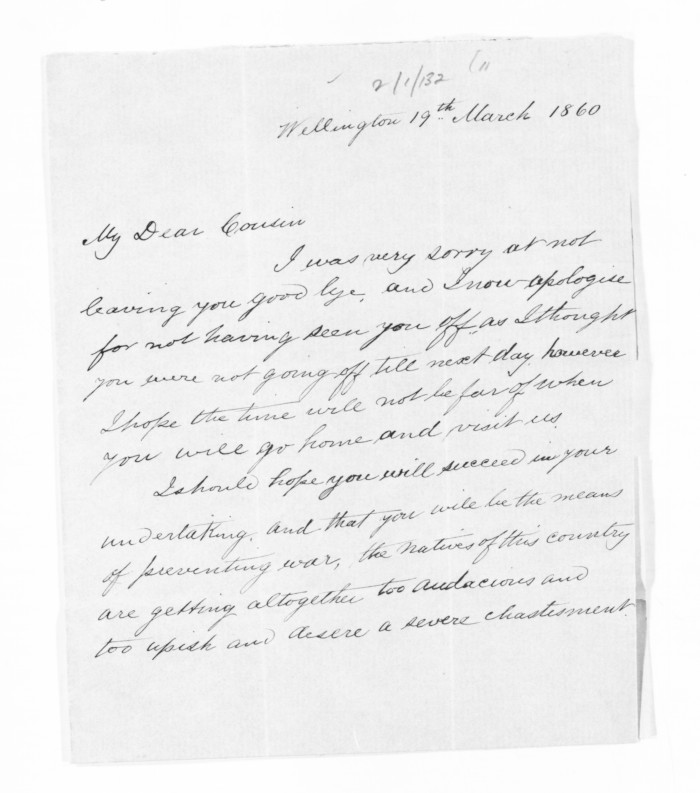 2/1/132
Wellington 19th March 1860
My Dear Cousin
I was very sorry at not
leaving you good bye, and I now apologise
for not having seen you off, as I thought
you were not going off till next day, however
I hope the time will not be far of when
you will go home and visit us.
I should hope you will succeed in your
undertaking, and that you will be the means
of preventing war, the natives of this country
are getting altogether too audacious and
too upish and desere a severe chastisment.